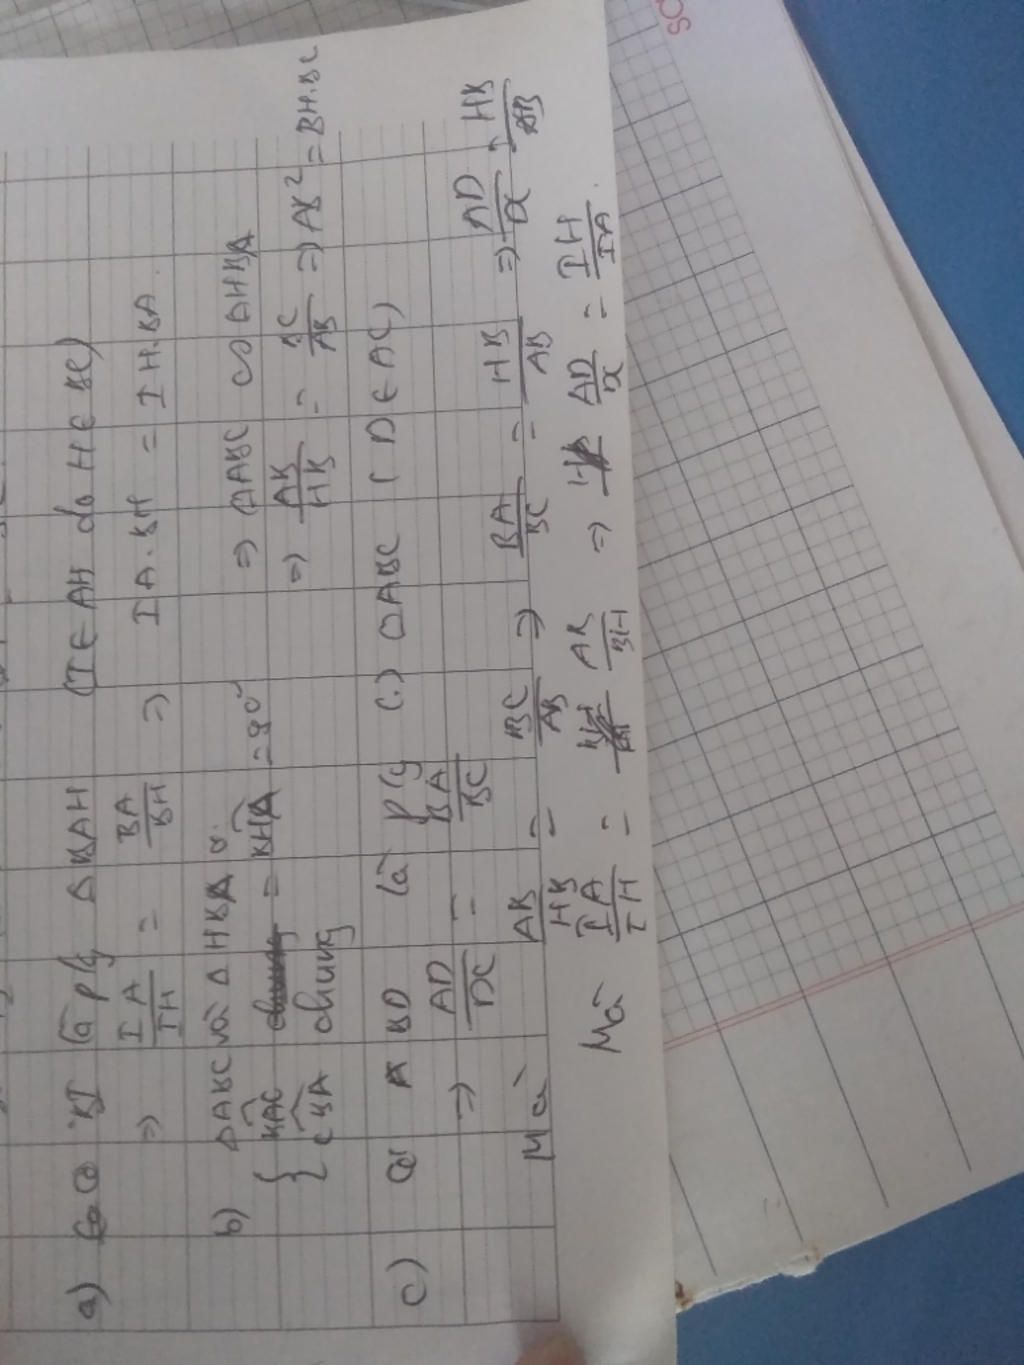 a) Có BI là pg ΔBAH (I ∈ AH do H ∈ BC)
⇒ IA/IH = BA/BH ⇒ IA.BH = IH.BA
b) ΔABC và ΔHBA có:
{ BAC = BHA = 90° ⇒ ΔABC ∽ ΔHBA
CBA chung ⇒ AB/HB = BC/AB ⇒ AB² = BH.BC
c) Có BD là pg của ΔABC (D ∈ AC)
⇒ AD/DC = BA/BC
Mà AB/HB = BC/AB ⇒ BA/BC = HB/AB ⇒ AD/DC = HB/AB
Mà IA/IH = AB/BH ⇒ AD/DC = IH/IA.